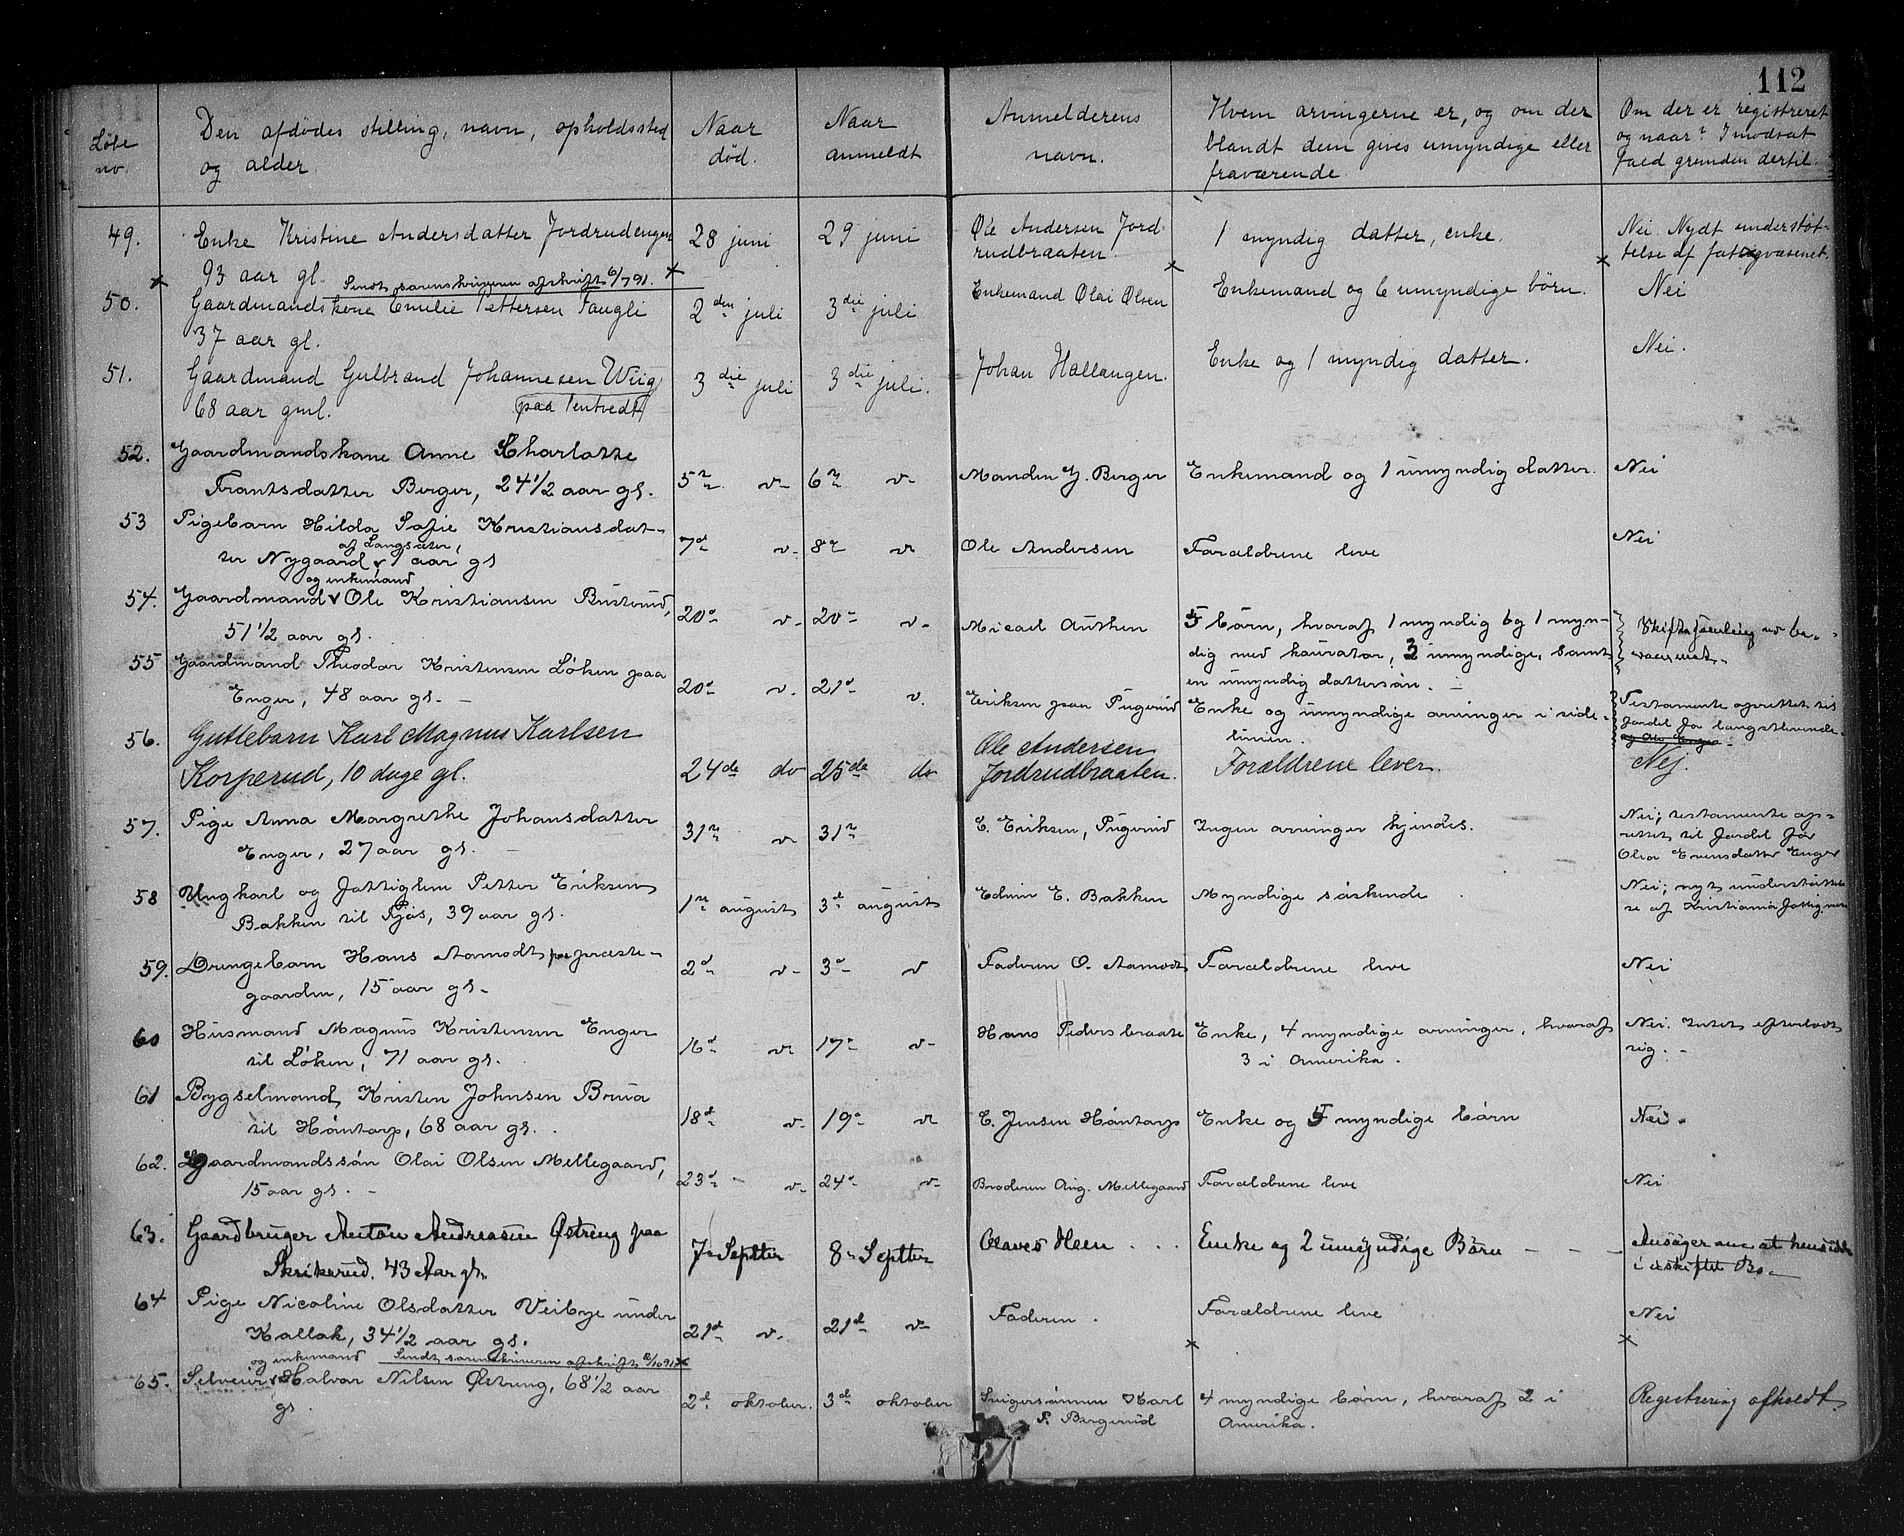 112
Løbe no.
Den afdødes stilling, navn, opholdssted og alder.
Naar død.
Naar anmeldt
Anmelderens navn.
Hvem arvingerne er, og om der blandt dem gives umyndige eller fraværende.
Om der er registreret og naar? I modsat fald grunden dertil.
49. Enke Kristine Andersdatter Jordrudengen 28 juni 29 juni Ole Andersen Jord- 1 myndig datter, enke. Nei. Nydt understøt-
93 aar gl. rudbraaten. telse af fattigvæsenet.
Sendt sorenskriveren afskrift 6/7 91.
50. Gaardmandskone Emilie Pettersen Faugli 2den juli 3die juli Enkemand Olai Olsen Enkemand og 6 umyndige børn. Nei
37 aar gl.
51. Gaardmand Gulbrand Johannesen Wiig 3die juli 3die juli. Johan Hallangen. Enke og 1 myndig datter. Nei.
68 aar gml. (paa Tentvedt)
52. Gaardmandskone Anne Charlotte
Frantsdatter Berger, 24 1/2 aar gl. 5te d- 6te d- Manden J. Berger Enkemand og 1 umyndig datter. Nei
53 Pigebarn Hilda Sofie Kristiansdat-
af Langsæter,
ter Nygaard, 1 aar gl 7d d- 8d d Ole Andersen Forældrene leve Nei
og enkemand
54. Gaardmand Ole Kristiansen Busterud, 20d d- 20d d- Micael Authen 5 børn, hvoraf 1 myndig og 1 myn-
51 1/2 aar gl. dig med kurator, 3 umyndige, samt
en umyndig dattersøn.
55 Gaardmand Theodor Kristensen Løken paa 20d d. 21d d. Eriksen paa Pugerud Enke og umyndige arvinger i side- Testamente oprettet til
Enger, 48 aar gl. linien. fordel for længstlevende
56. Guttebarn Karl Magnus Karlsen Ole Andersen
Korperud, 10 dage gl. 24de do 25de do Jordrudbraaten. Forældrene lever. Nej.
57. Pige Anna Margrethe Johansdatter 31te d- 31te C. Eriksen, Pugerud Ingen arvinger kjendes. Nei; testamente op-
Enger, 27 aar gl. rettet til fordel for
Olea Evensdatter Enger
58 Ungkarl og fattiglem Petter Eriksen 1te august 3d august Edvin E. Bakken Myndige søskende Nei; nyt understøttel-
Bakken til Sjøs, 39 aar gl. se af Kristiania fattigvæsen
59. Drengebarn Hans Aamodt paa præste- 2d d- 3d d Faderen O. Aamodt Forældrene leve Nei
gaarden, 15 aar gl.
60 Husmand Magnus Kristensen Enger 16d d- 17d d- Hans Pedersbraate Enke, 4 myndige arvinger, hvoraf Nei. Intet efterladt
til Løken, 71 aar gl. 3 i Amerika. sig.
61 Bygselmand Kristen Johnsen Brua 18d d- 19d d C. Jensen Høntorp Enke og 5 myndige børn Nei.
til Høntorp, 68 aar gl.
62. Gaardmandssøn Olai Olsen Mellegaard, 23d d- 24d d- Broderen Aug. Mellegaard Forældrene leve Nei
15 aar gl.
63. Gaardbruger Anton Andreasen Østreng paa 7de Septter 8de Septter Olaves Heen Enke og 2 umyndige Børn Ansøger om at hensidde
Skrikerud. 43 Aar gl. i uskiftet Bo
64 Pige Nicoline Olsdatter Veibye under 21d d- 21d d- Faderen. Forældrene leve Nei
Kallak, 34 1/2 aar gl.
og enkemand Sendt sorenskriveren afskrift
65. Selveier Halvor Nilsen Østreng, 68 1/2 aar 2d oktober. 3d oktober Svigersønnen Karl 4 myndige børn, hvoraf 2 i Registrering afholdt.
gl. F. Bergerud Amerika.